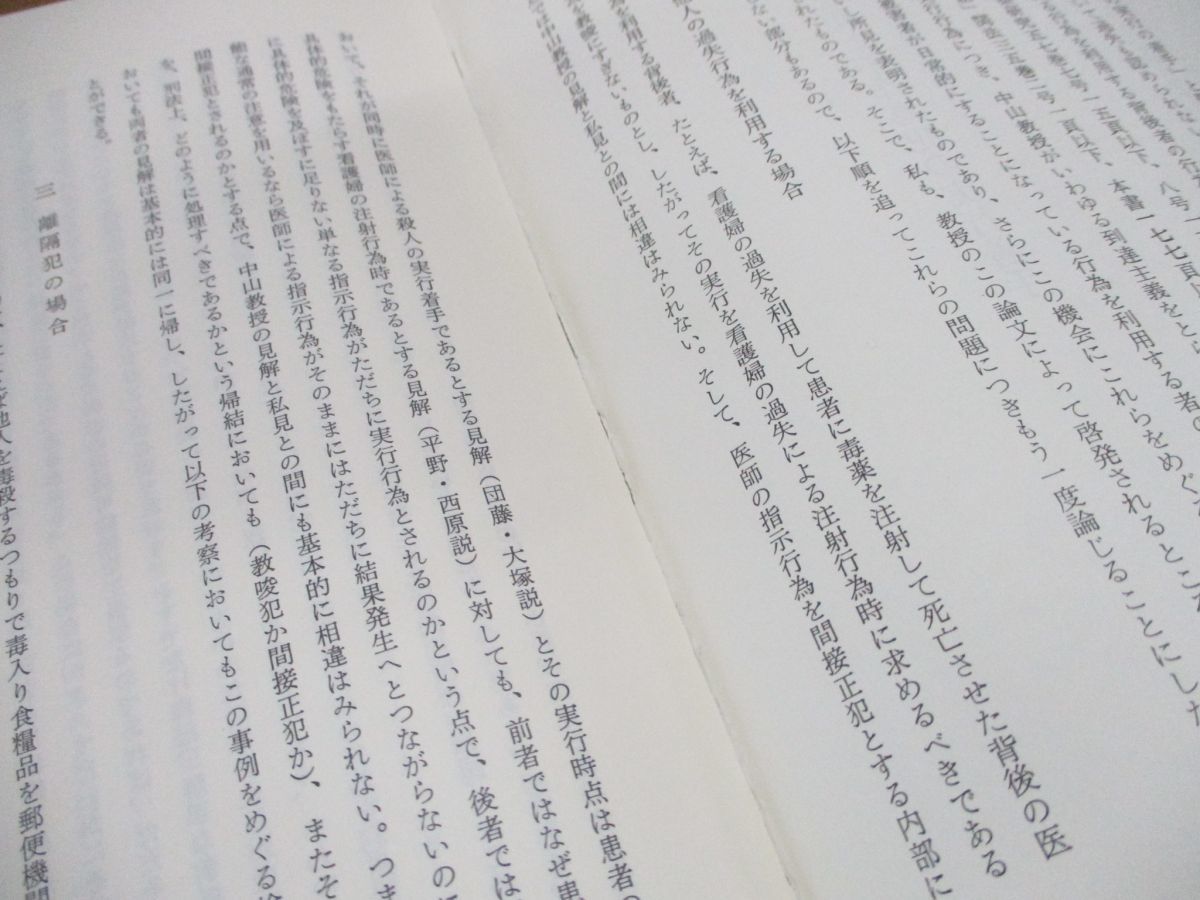 の過失も認められない
を利用する背後者の行
七巻七号一五頁以下、八号一
関法三五巻二号一頁以下、本書一七七頁以
行為につき、中山教授がいわゆる到達主義をとら
被害者が日常的にすることになっている行為を利用する者の
れたものである。そこで、私も、教授のこの論文によって啓発されるところ
い所見を表明されたものであり、さらにこの機会にこれらをめぐる
ない部分もあるので、以下順を追ってこれらの問題につきもう一度論じることにした
他人の過失行為を利用する場合
を利用する背後者、たとえば、看護婦の過失を利用して患者に毒薬を注射して死亡させた背後の医
を教唆にすぎないものとし、したがってその実行を看護婦の過失による注射行為時に求めるべきである
では中山教授の見解と私見との間には相違はみられない。そして、医師の指示行為を間接正犯とする内部に
おいて、それが同時に医師による殺人の実行着手であるとする見解（団藤・大塚説）とその実行時点は患者の
具体的危険をもたらす看護婦の注射行為時であるとする見解（平野・西原説）に対しても、前者ではなぜ患
に具体的危険を及ぼすに足りない単なる指示行為がただちに実行行為とされるのかという点で、後者では
師な通常の注意を用いるなら医師による指示行為がそのままにはただちに結果発生へとつながらないのに
間接正犯とされるのかとする点で、中山教授の見解と私見との間にも基本的に相違はみられない。つま
を、刑法上、どのように処理すべきであるかという帰結においても（教唆犯か間接正犯か）、またそ
おいても両者の見解は基本的には同一に帰し、したがって以下の考察においてもこの事例をめぐる
とができる。
三 離隔犯の場合
たとえば他人を毒殺するつもりで毒入り食糧品を郵便機関